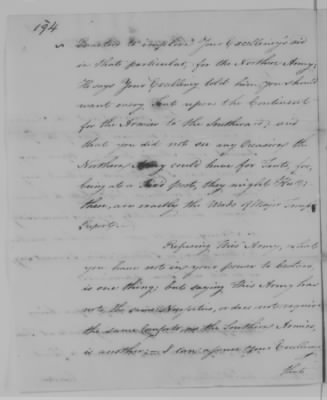 194
Directed to implore Your Excellency's aid
in that particular, for the Northern Army;
He says Your Excellency told him, you should
want every Tent upon the Continent
for the Armies to the Southward; and
that you did not see any Occasion the
Northern Army could have for Tents, for,
being at a Fixed post, they might Hutt;
these, are exactly the Words of Major Troup's
Report.
Refusing this Army, what
you have not in your power to bestow,
is one thing; but saying this Army has
not the same Necessities, or does not require
the same Comforts, as the Southern Armies,
is another; I can assure your Excellency
that